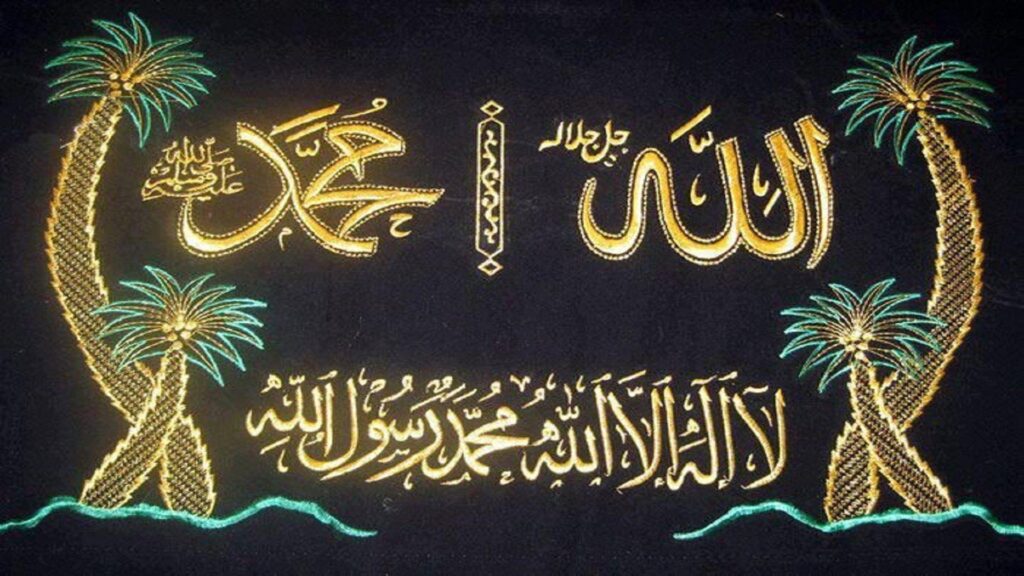 الله جل جلاله
محمد صلى الله عليه وسلم
لا اله الا الله محمد رسول الله